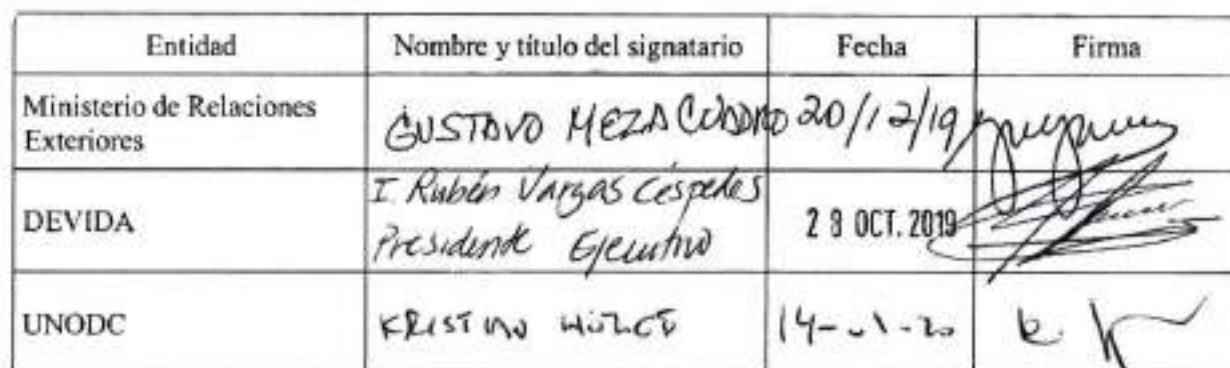 Entidad Nombre y título del signatario Fecha Firma
Ministerio de Relaciones Exteriores GUSTAVO MEZA CUADRO 20/12/19
DEVIDA I. Rubén Vargas Céspedes Presidente Ejecutivo 28 OCT. 2019
UNODC 14-01-20